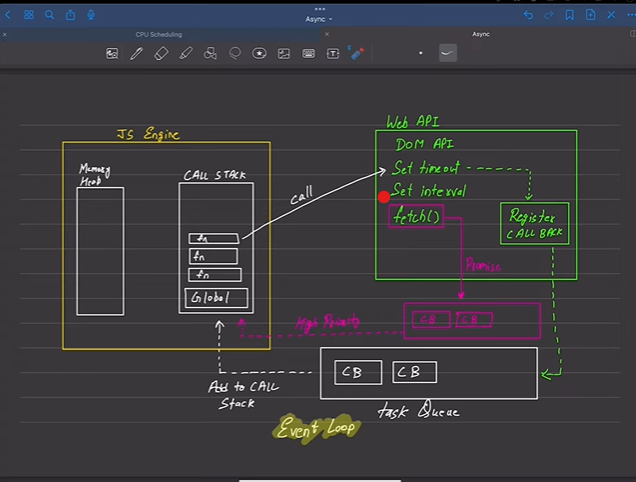 Async
CPU Scheduling
Async
JS Engine
Memory
Heab
CALL STACK
fn
fn
fn
Global
call
Web API
DOM API
Set timeout
Set interval
fetch()
Register
CALL BACK
Promise
High Priority
CB
CB
CB
CB
Add to CALL
Stack
task Queue
Event Loop